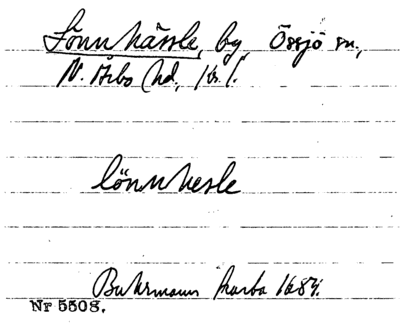 Lönnhässle, by, Össjö sn,
N. Åsbo hd, Kr. l.
lönnhesle
Buhrmanns karta 1684.
Nr 5508.